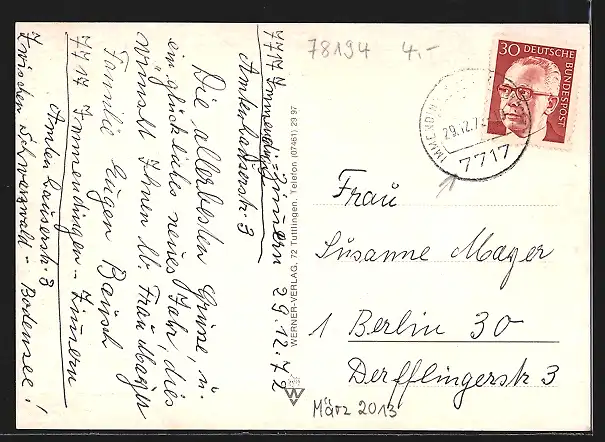 7717 Immendingen-Zimmern 29.12.72
Amtenhauserstr. 3
Die allerbesten Grüsse, u.
ein glückliches neues Jahr, dies
wünscht Ihnen lb. Frau Mayer
Familie Eugen Bausch
7717 Immendingen - Zimmern
Amtenhauserstr. 3
Zwischen Schwarzwald - Bodensee!
WERNER-VERLAG, 72 Tuttlingen, Telefon (07461) 29 97
W
78194 4.-
30 DEUTSCHE
BUNDESPOST
29.12.7
7717
Frau
Susanne Mayer
1 Berlin 30
Derfflingerstr 3
März 2013